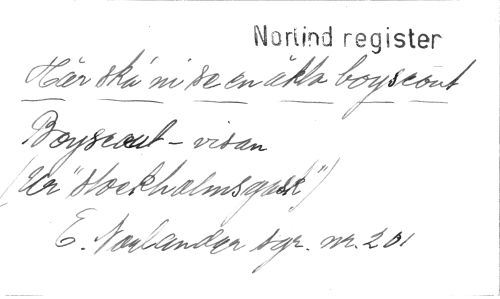 Norlind register
Här ska' ni se en äkta boyscout
Boyscout - visan
(Ur "Stockholmsgask")
E. Norlander sgr. nr. 201